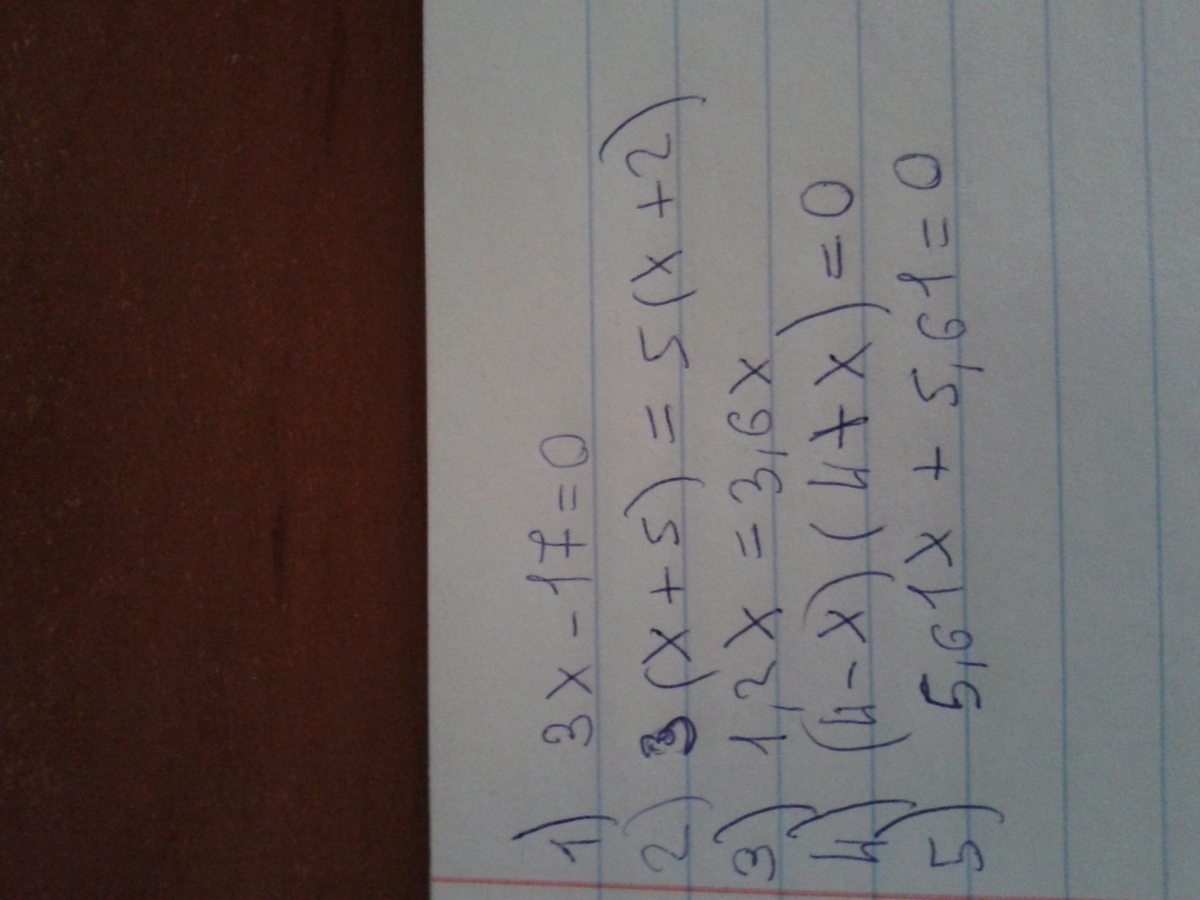 1) 3x - 17 = 0
2) 3(x + 5) = 5(x + 2)
3) 1,2x = 3,6x
4) (4 - x)(4 + x) = 0
5) 5,61x + 5,61 = 0